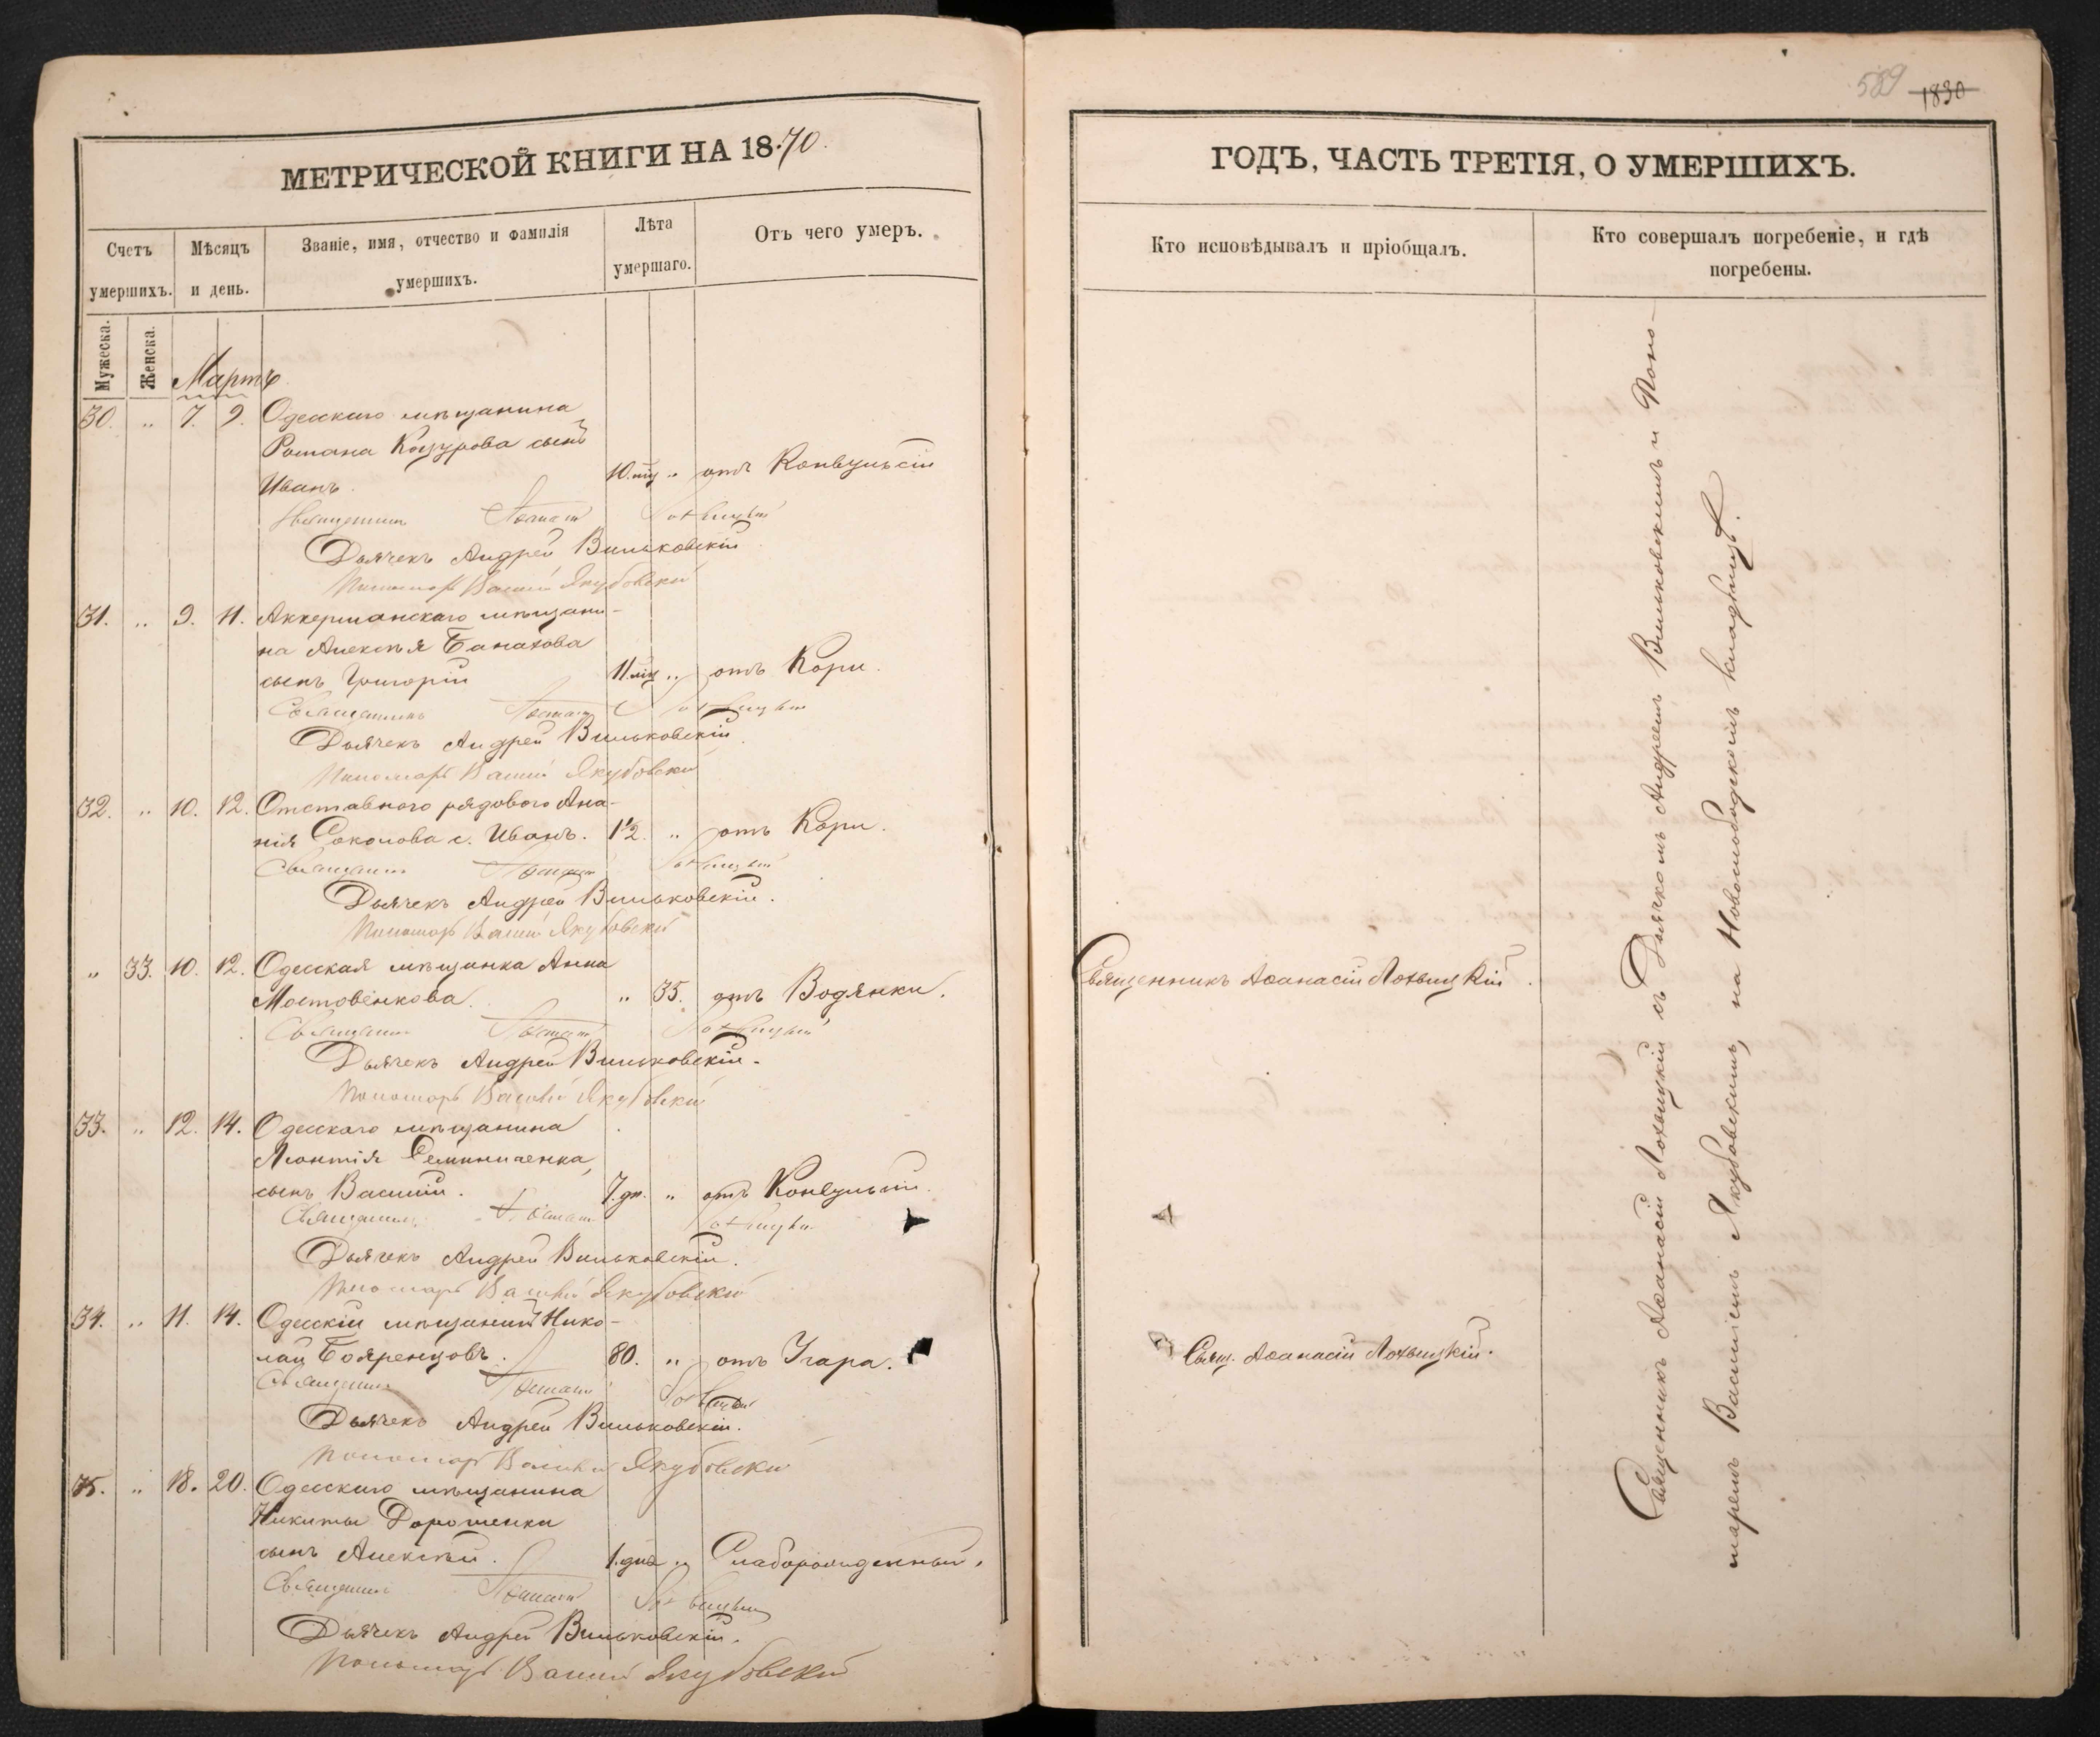 МЕТРИЧЕСКОЙ КНИГИ НА 1870.
Счетъ умершихъ.
Мѣсяцъ и день.
Званіе, имя, отчество и фамилія умершихъ.
Лѣта умершаго.
Отъ чего умеръ.
Мужеска.
Женска.
Мартъ
30. „ 7. 9. Одесскаго мѣщанина
Романа Кацурова сынъ
Иванъ. 10 мц „ отъ Конвульсіи
Священникъ Лохвицкій
Дьячекъ Андрей Вильковскій
Пономарь Василій Якубовскій
31. „ 9. 11. Аккерманскаго мѣщани-
на Алексѣя Банахова
сынъ Григорій 11 мц „ отъ Кори.
Священникъ Лохвицкій
Дьячекъ Андрей Вильковскій
Пономарь Василій Якубовскій
32. „ 10. 12. Отставного рядового Ана-
нія Соколова с. Иванъ. 1½. „ отъ Кори.
Священникъ Лохвицкій
Дьячекъ Андрей Вильковскій.
Пономарь Василій Якубовскій
„ 33. 10. 12. Одесская мѣщанка Анна
Мостовенкова. „ 35. отъ Водянки.
Священникъ Лохвицкій
Дьячекъ Андрей Вильковскій.
Пономарь Василій Якубовскій
33. „ 12. 14. Одесскаго мѣщанина
Леонтія
сынъ Василій. 7. дн. „ отъ Конвульсіи.
Священникъ Лохвицкій
Дьячекъ Андрей Вильковскій.
Пономарь Василій Якубовскій
34. „ 11. 14. Одесскій мѣщанинъ Нико-
лай Бояренцовъ. 80. „ отъ Угара.
Священникъ Лохвицкій
Дьячекъ Андрей Вильковскій.
Пономарь Василій Якубовскій
35. „ 18. 20. Одесскаго мѣщанина
Никиты Дорошенки
сынъ Алексѣй. 1. дня „ Слаборожденный.
Священникъ Лохвицкій
Дьячекъ Андрей Вильковскій.
Пономарь Василій Якубовскій
589 1830
ГОДЪ, ЧАСТЬ ТРЕТІЯ, О УМЕРШИХЪ.
Кто исповѣдывалъ и пріобщалъ.
Кто совершалъ погребеніе, и гдѣ
погребены.
Священникъ Аѳанасій Лохвицкій.
Свящ. Аѳанасій Лохвицкій.
Священникъ Аѳанасій Лохвицкій съ Дьячкомъ Андреемъ Вильковскимъ и Поно-
маремъ Василіемъ Якубовскимъ, на Новослободскомъ кладбищѣ.